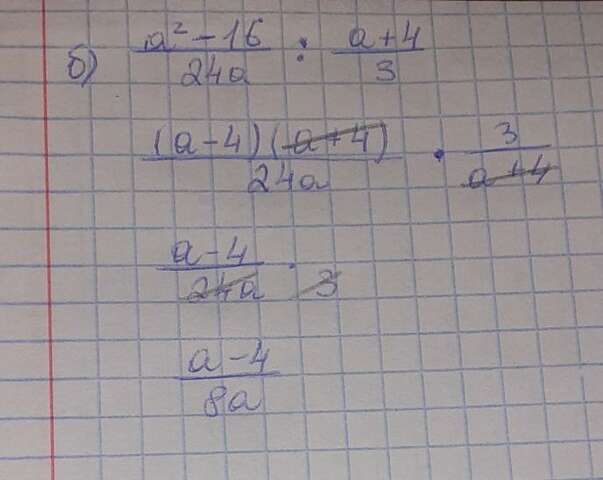 б) (a² - 16)/(24a) : (a+4)/3
((a-4)(a+4))/(24a) · 3/(a+4)
(a-4)/(24a) · 3
(a-4)/(8a)